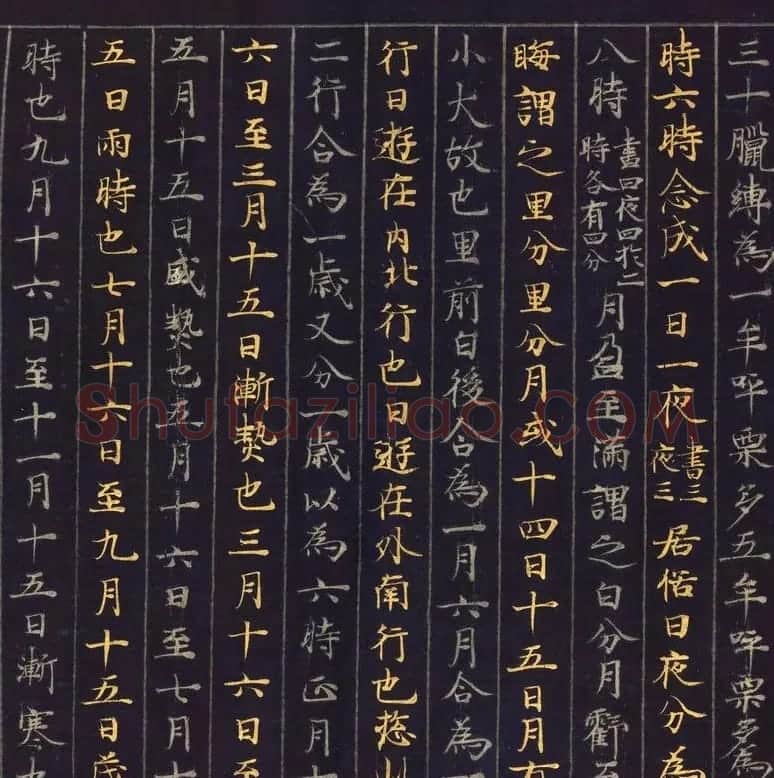 三十臘縛為一牟呼栗多五牟呼栗多為
時六時念成一日一夜晝三夜三居俗日夜分為
八時晝四夜四於一時各有四分月盈至滿謂之白分月虧至
晦謂之里分里分月或十四日十五日月有
小大故也里前白後合為一月六月合為
行日遊在內北行也日遊在外南行也惣此
二行合為一歲又分一歲以為六時正月十
六日至三月十五日漸熱也三月十六日至
五月十五日盛熱也五月十六日至七月十
五日雨時也七月十六日至九月十五日茂
時也九月十六日至十一月十五日漸寒也
Shufaziliao.COM